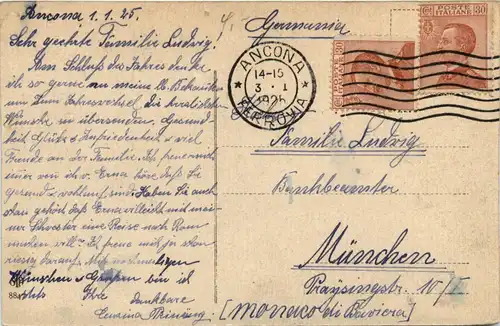 Ancona 1.1.25.
Sehr geehrte Familie Ludwig!
Am Schluß des Jahres
ich so gerne an meine l. Bekannten
um zum Jahreswechsel die herzlichsten
Wünsche zu übersenden. Gesund-
heit Glück & Zufriedenheit & viel
Freude an der Familie. Ich freue mich
immer von ihr v. Erna höre, daß Sie
gesund & wohlauf sind. Haben Sie auch
schon gehört daß Erna vielleicht mit mei-
ner Schwester eine Reise nach Rom
machen will? Ich freue mich ja schon
riesig darauf. Mit
Wünschen & Grüßen bin ich
stets Ihre
dankbare
Germania
ANCONA
14-15
3 · I
1925
FERROVIA
POSTE ITALIANE 30
POSTE ITALIANE 30
Familie Ludwig
Bankbeamter
München
Praysingstr. 10/I
[Monaco di Baviera]